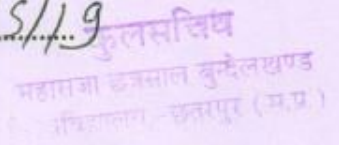 5/1/9
कुलसचिव
महाराजा छत्रसाल बुन्देलखण्ड
छतरपुर (म.प्र.)